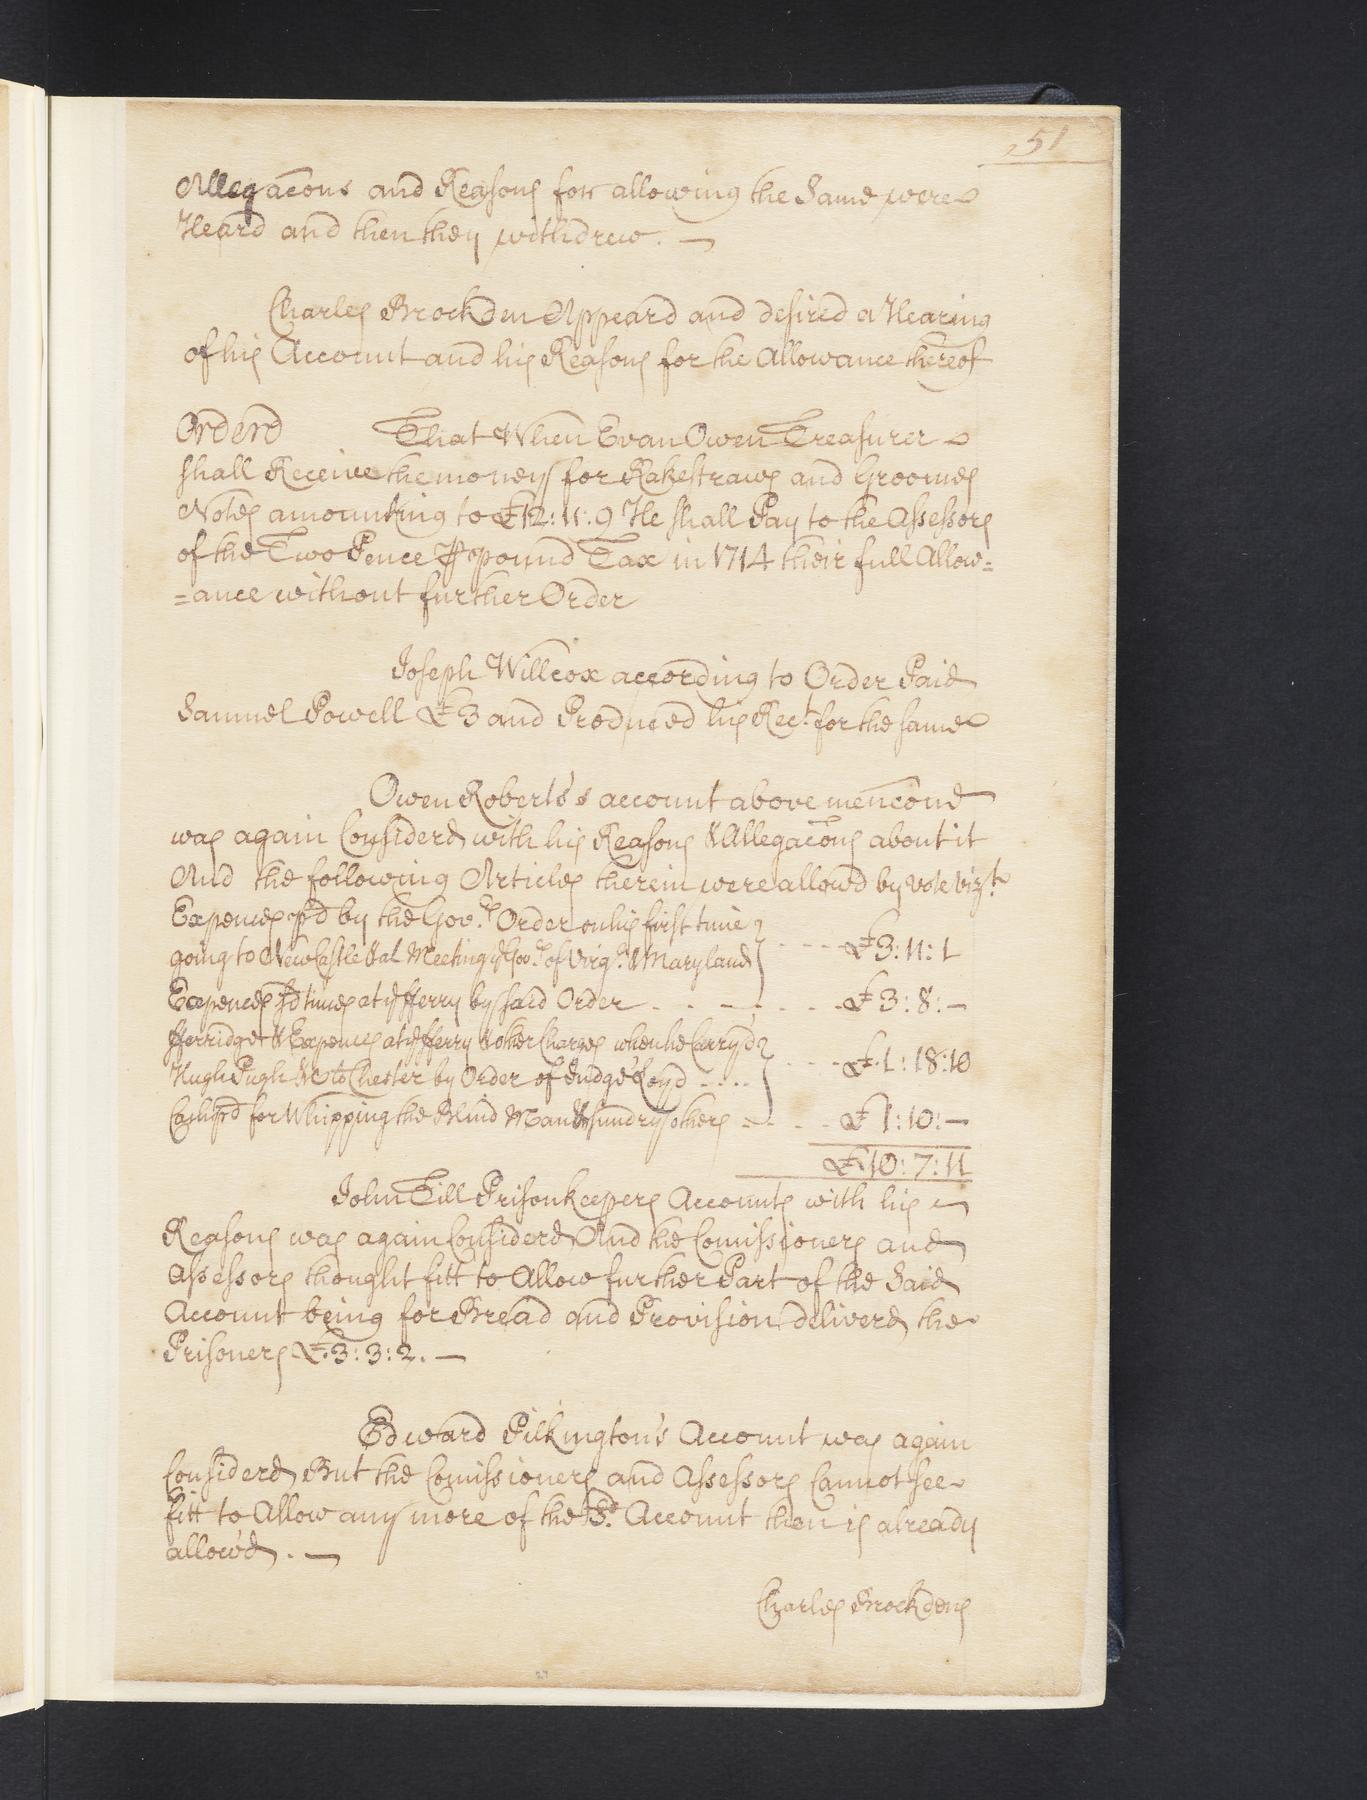 51
Allegacons and Reasons for allowing the Same were
Heard and then they withdrew. —
Charles Brockden Appeard and desired a Hearing
of his Account and his Reasons for the Allowance thereof
Orderd That When Evan Owen Treasurer
shall Receive the moneys for Rakestraws and Groomes
Notes amounting to £12:11:9 He shall Pay to the Assessors
of the Two Pence ⅌ pound Tax in 1714 their full Allow=
=ance without further Order
Joseph Willcox according to Order Paid
Samuel Powell £3 and Produced his Rect. for the same
Owen Roberts's account above mencond
was again Considerd with his Reasons & Allegacons about it
And the following Articles therein were allowd by vote vizt.
Expences pd by the Govr. Order on his first time
going to NewCastle & at Meeting ye Govr. of Virga. & Maryland - - - - £3:11:1
Expences 3d times at ye fferry by said Order - - - - - £3:8:—
fferridge & Expences at ye fferry & other Charges when he Carry'd
Hugh Pugh &c to Chester by Order of Judge Loyd - - - - £1:18:10
Cash pd for Whipping the Blind Man & sundry others - - - - £1:10:—
£10:7:11
John Till Prisonkeepers Accounts with his
Reasons was again Considerd And the Comissioners and
Assessors thought fitt to Allow further Part of the Said
Account being for Bread and Provision deliverd the
Prisoners £3:3:2. —
Edward Pilkington's Account was again
Considerd But the Comissioners and Assessors Cannot see
fitt to Allow any more of the Sd. Account then is already
allow'd. —
Charles Brockdens